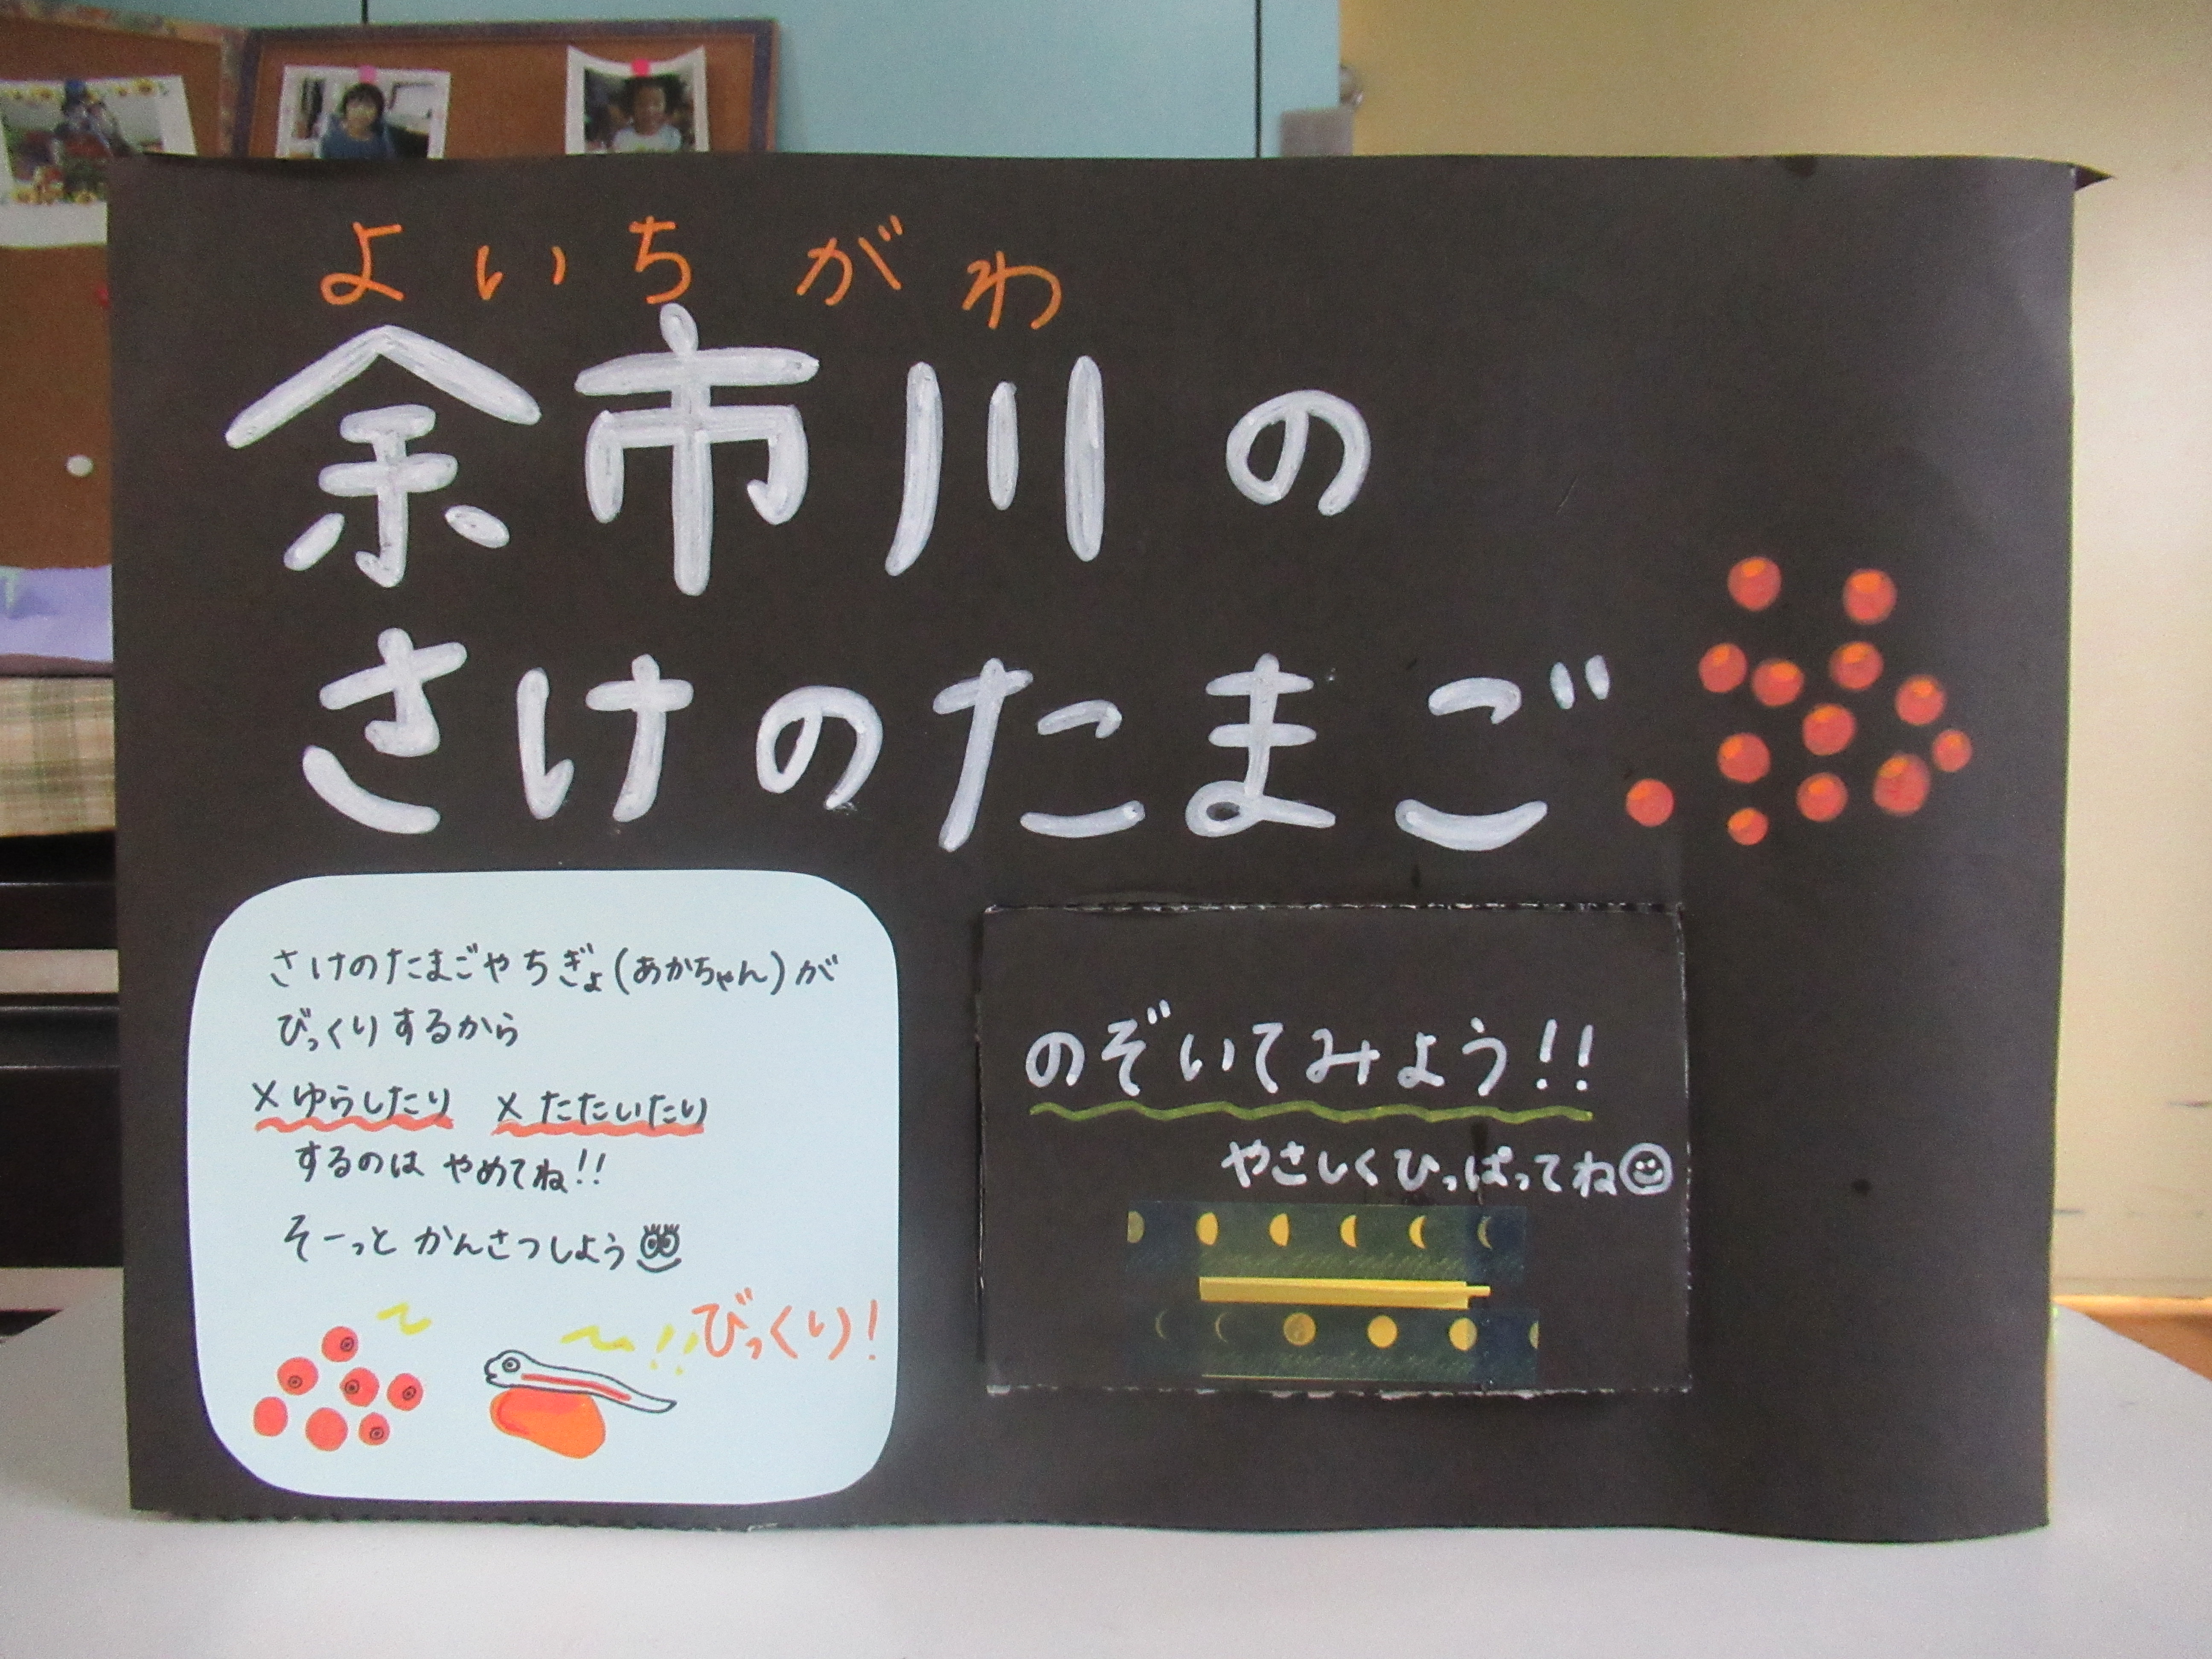 よいちがわ
余市川の
さけのたまご
さけのたまごやちぎょ(あかちゃん)が
びっくりするから
×ゆらしたり ×たたいたり
するのは やめてね!!
そーっと かんさつしよう
!!びっくり!
のぞいてみよう!!
やさしくひっぱってね